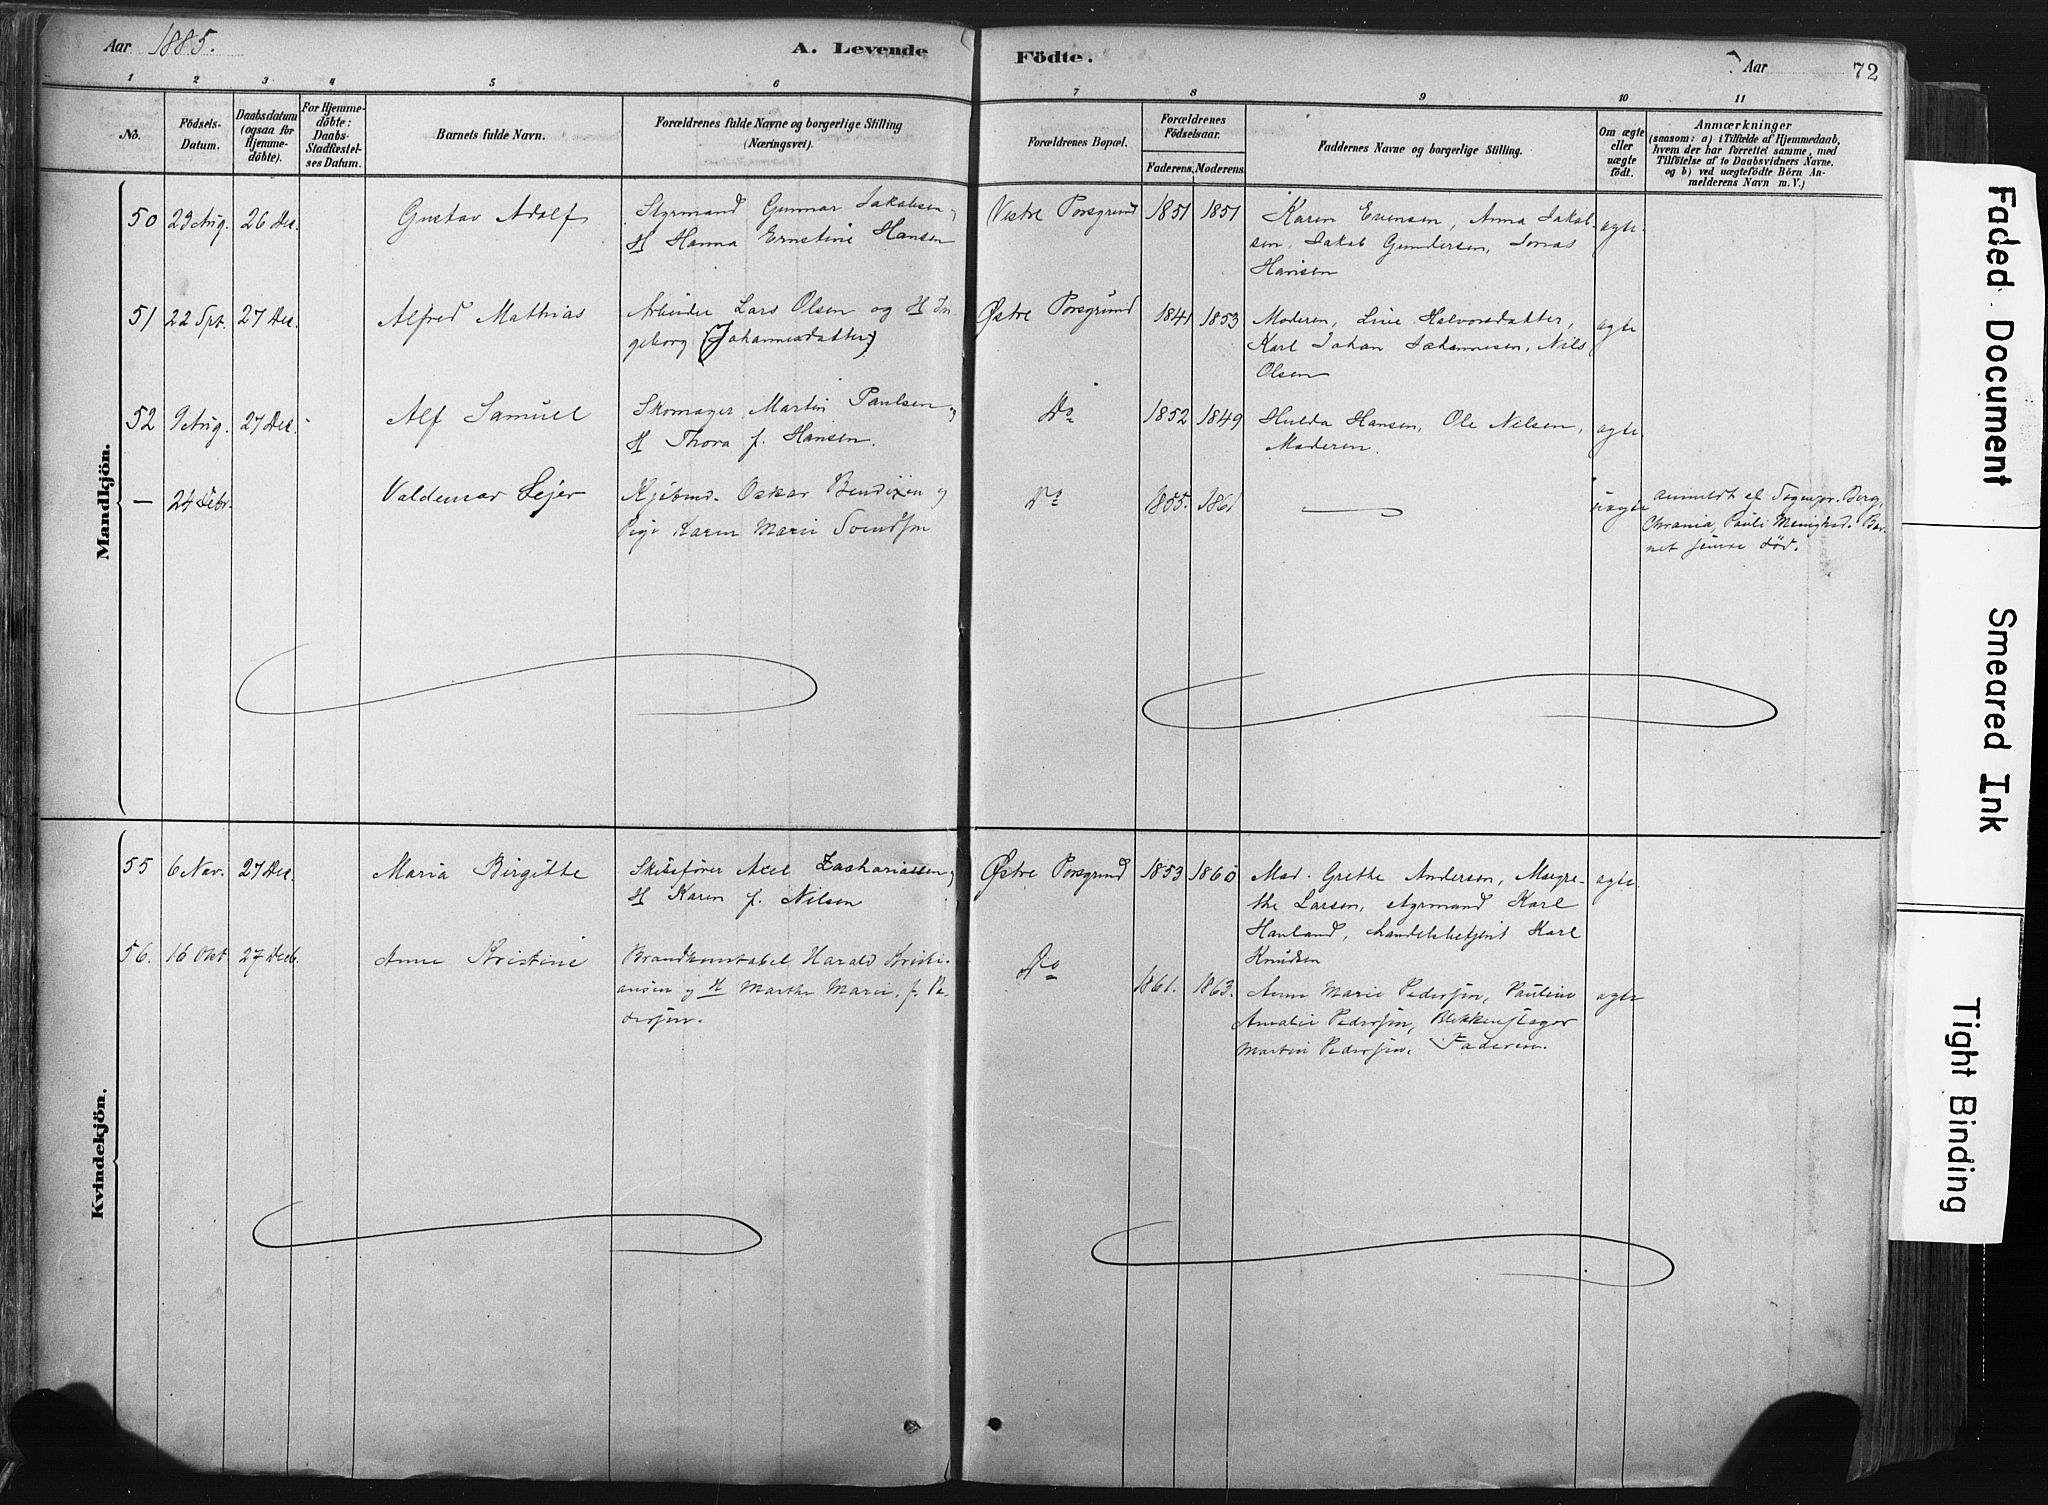 Aar 1885.
A. Levende
Födte.
Aar
72
1 2 3 4 5 6 7 8 9 10 11
No.
Födsels-
Datum.
Daabsdatum
(ogsaa for
Hjemme-
döbte).
For Hjemme-
döbte:
Daabs-
Stadfæstel-
ses Datum.
Barnets fulde Navn.
Forældrenes fulde Navne og borgerlige Stilling
(Næringsvei).
Forældrenes Bopæl.
Forældrenes
Födselsaar.
Faderens. Moderens.
Faddernes Navne og borgerlige Stilling.
Om ægte
eller
uægte
födt.
Anmærkninger
(saasom: a) i Tilfælde af Hjemmedaab,
hvem der har forrettet samme, med
Tilföielse af to Daabsvidners Navne.
og b) ved uægtefödte Börn An-
melderens Navn m. V.)
Mandkjön.
50 23 Aug. 26 Dec. Gustav Adolf Styrmand Gunnar Jakobsen og Vestre Porsgrund 1851 1851 Karen Evensen, Anna Jakob- ægte.
H Hanna Ernstine Hansen sen, Jakob Gundersen, Jonas
Hansen
51 22 Spt. 27 Dec. Alfred Mathias Arbeider Lars Olsen og H In Østre Porsgrund 1841 1853 Moderen, Live Halvorsdatter, ægte
geborg (Johannesdatter) Karl Johan Johannesen, Nils
Olsen
52 9 Aug. 27 Dec. Alf Samuel Skomager Martin Paulsen og Do 1852 1849 Hulda Hansen, Ole Nilsen, ægte.
H Thora f. Hansen. Moderen.
— 24 Febr. Valdemar Sejer Kjöbmd. Oskar Bendixen og Do 1855. 1861 — uægte anmeldt af Sogenpr. Berg,
Pige Karen Marie Svendsen Chrania, Pauli Menighed. Bar-
net senere död.
Kvindekjön.
55 6 Nov. 27 Dec. Maria Birgitte Skibsförer Axel Zachariassen og Østre Porsgrund 1853 1860 Mad. Grethe Andersen, Magre- ægte.
H Karen f. Nilsen the Larsen, styrmand Karl
Hauland, handelsbetjent Karl
Knudsen
56. 16 Okt. 27 Decb. Anne Kristine Brandkonstabel Harald Kristi- Do 1861. 1863. Anne Marie Pedersen, Pauline ægte
ansen og H Marthe Marie f. Pe- Amalie Pedersen, Blikkenslager
dersen. Martin Pedersen, Faderen.
Faded Document
Smeared Ink
Tight Binding